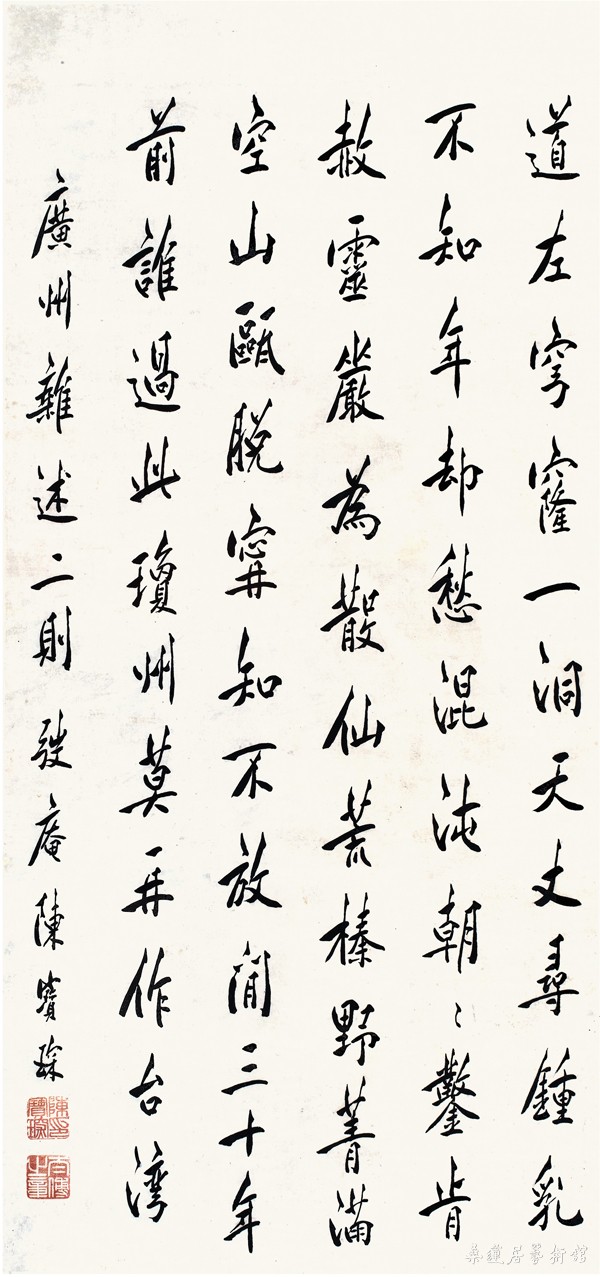 道左穹窿一洞天丈尋鍾乳
不知年却愁混沌朝〻鑿肯
赦靈巖為散仙荒榛野菁滿
空山甌脱寧知不放閒三十年
前誰過此瓊州莫再作台灣
廣州雜述二則 弢庵陳寶琛
陳寶琛印
太傅之章
藥蓮居藝術館